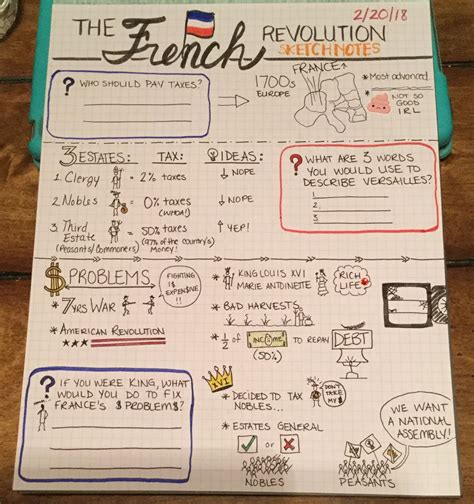 THE French REVOLUTION
2/20/18
SKETCHNOTES
? WHO SHOULD PAY TAXES?
1700s
EUROPE
FRANCE↑
*Most advanced
NOT SO
GOOD
IRL
3 ESTATES: TAX: IDEAS:
1. Clergy = 2% taxes ↓ NOPE
2. Nobles = 0% taxes ↓ NOPE
(WHOA!)
3. Third = 50% taxes ↑ YEP!
Estate (97% of the country's
(Peasants/Commoners) Money)
? WHAT ARE 3 WORDS
YOU WOULD USE TO
DESCRIBE VERSAILLES?
1.
2.
3.
$ PROBLEMS
FIGHTING
IS
EXPEN$IVE
!!
* 7YRS WAR
* AMERICAN REVOLUTION
* KING LOUIS XVI
MARIE ANTOINETTE
RICH
LIFE
* BAD HARVESTS
* 1/2 of INCOME TO REPAY DEBT
(50%)
? IF YOU WERE KING, WHAT
WOULD YOU DO TO FIX
FRANCE'S $ PROBLEM$?
XVI
* DECIDED TO TAX
NOBLES...
DON'T
TAKE
MY $
* ESTATES GENERAL
☑ or ☒
NOBLES PEASANTS
WE WANT
A NATIONAL
ASSEMBLY!